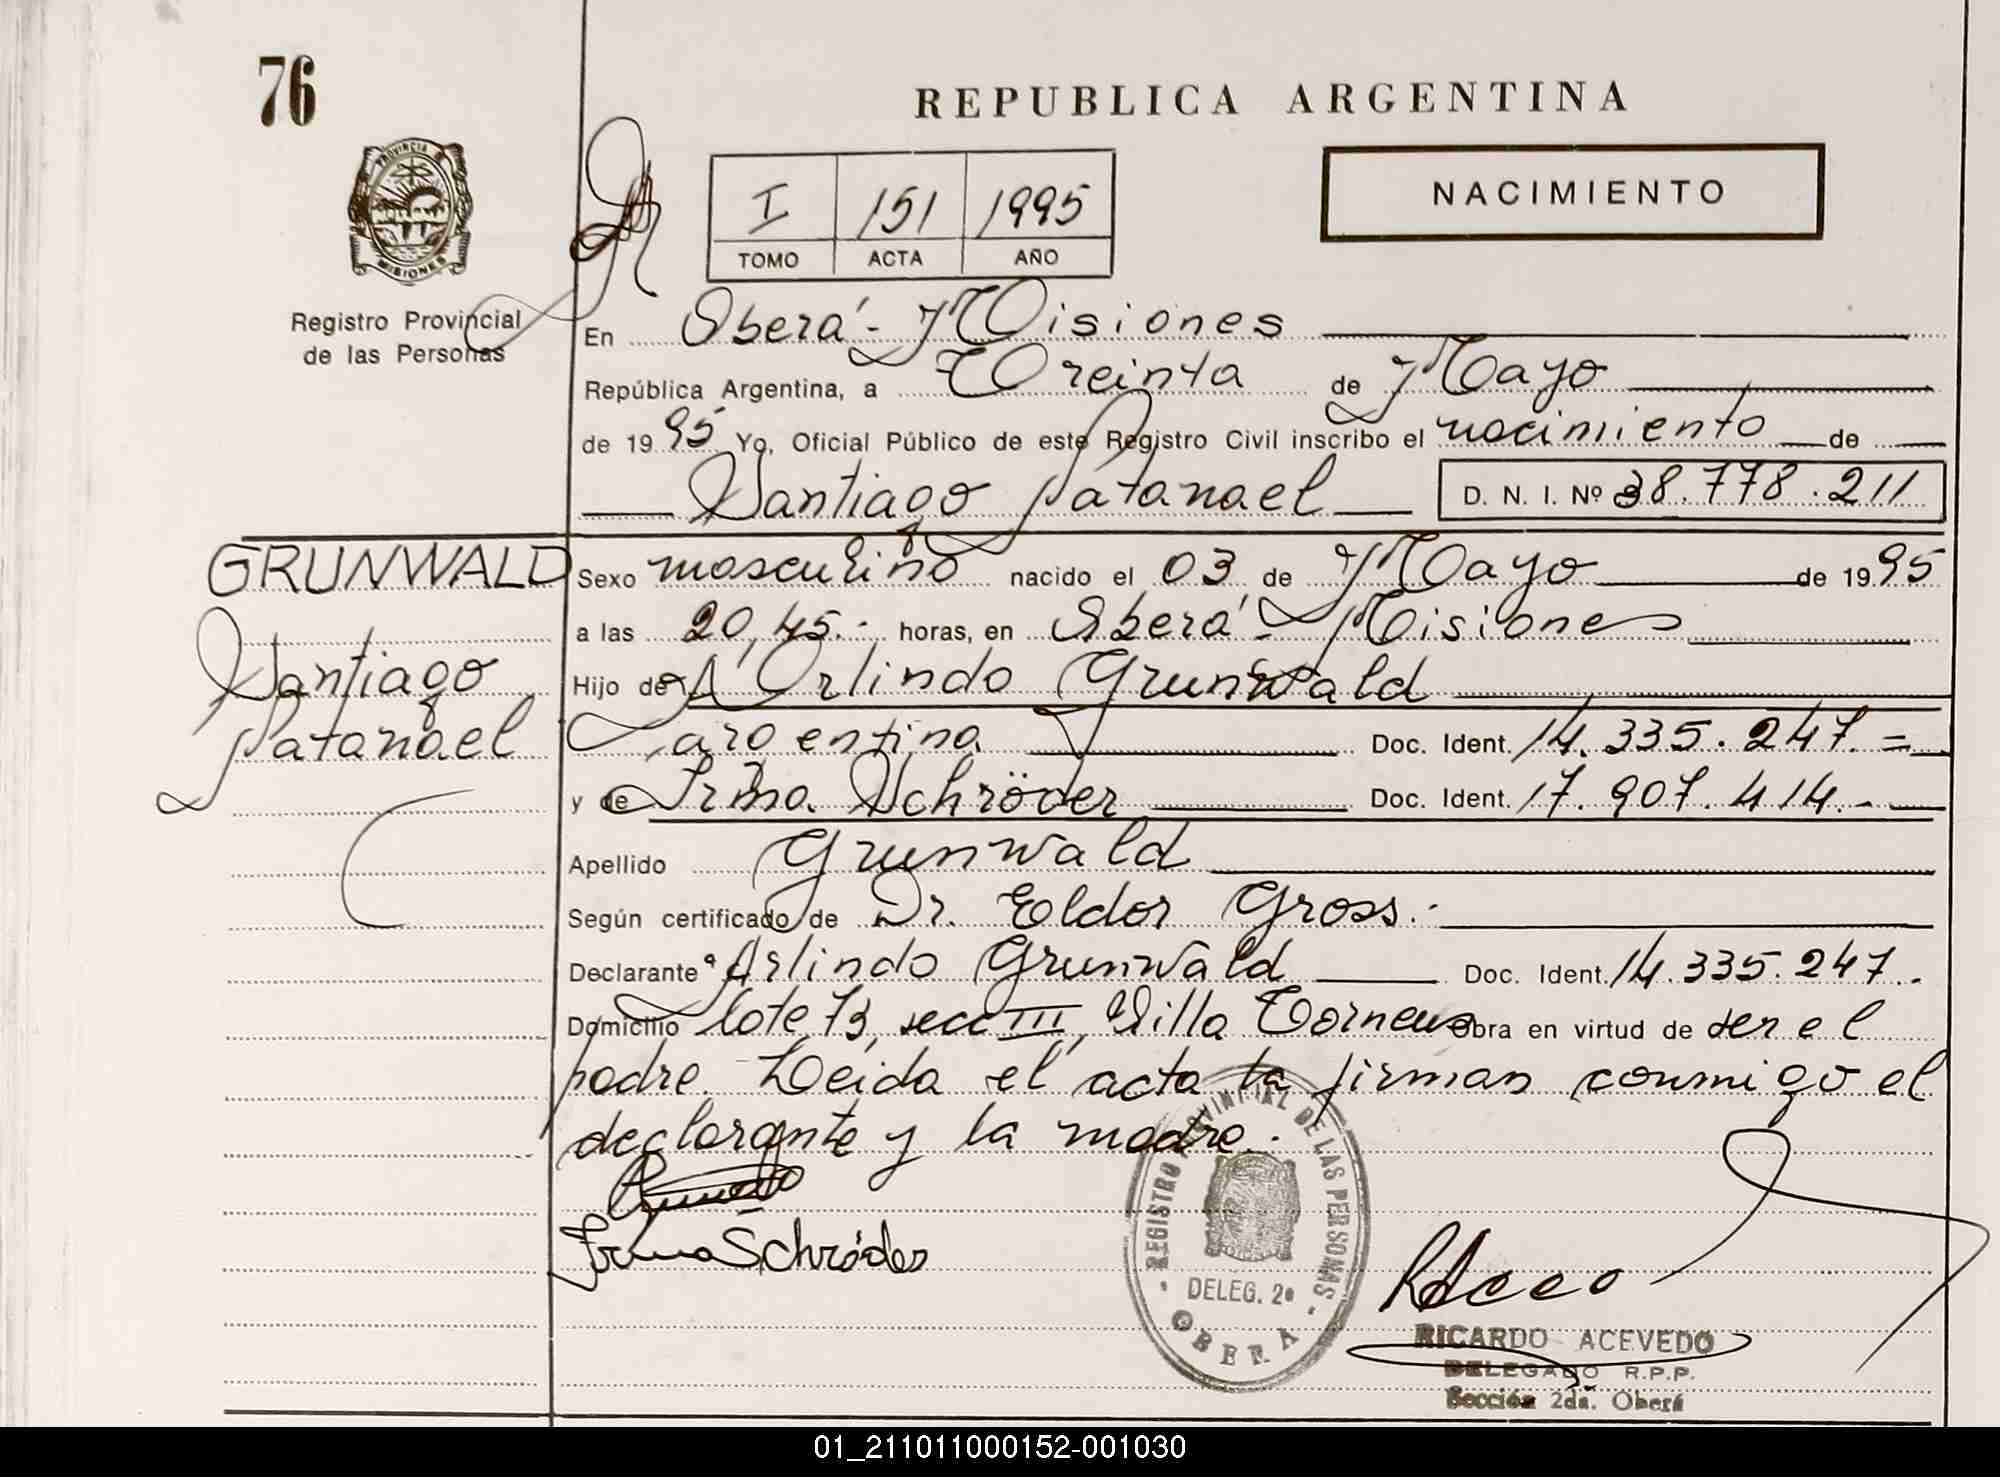 76
REPUBLICA ARGENTINA
PROVINCIA
MISIONES
Registro Provincial
de las Personas
I 151 1995
TOMO ACTA AÑO
NACIMIENTO
En Oberá - Misiones
República Argentina, a Treinta de Mayo
de 1995 Yo, Oficial Público de este Registro Civil inscribo el nacimiento de
Santiago Natanael D. N. I. Nº 38.778.211
GRUNWALD
Santiago
Natanael
Sexo masculino nacido el 03 de Mayo de 1995
a las 20,45.- horas, en Oberá - Misiones
Hijo de Arlindo Grunwald
argentina Doc. Ident. 14.335.247.=
y de Irma Schröder Doc. Ident. 17.907.414.-
Apellido Grunwald
Según certificado de Dr. Eldor Gross.-
Declarante Arlindo Grunwald Doc. Ident. 14.335.247.
Domicilio lote 73, secc III, Villa Torneus Obra en virtud de ser el
padre. Leida el acta la firman conmigo el
declarante y la madre.
Irma Schröder
REGISTRO PROVINCIAL DE LAS PERSONAS
DELEG. 2ª
OBERA
RICARDO ACEVEDO
DELEGADO R.P.P.
Sección 2da. Oberá
01_211011000152-001030